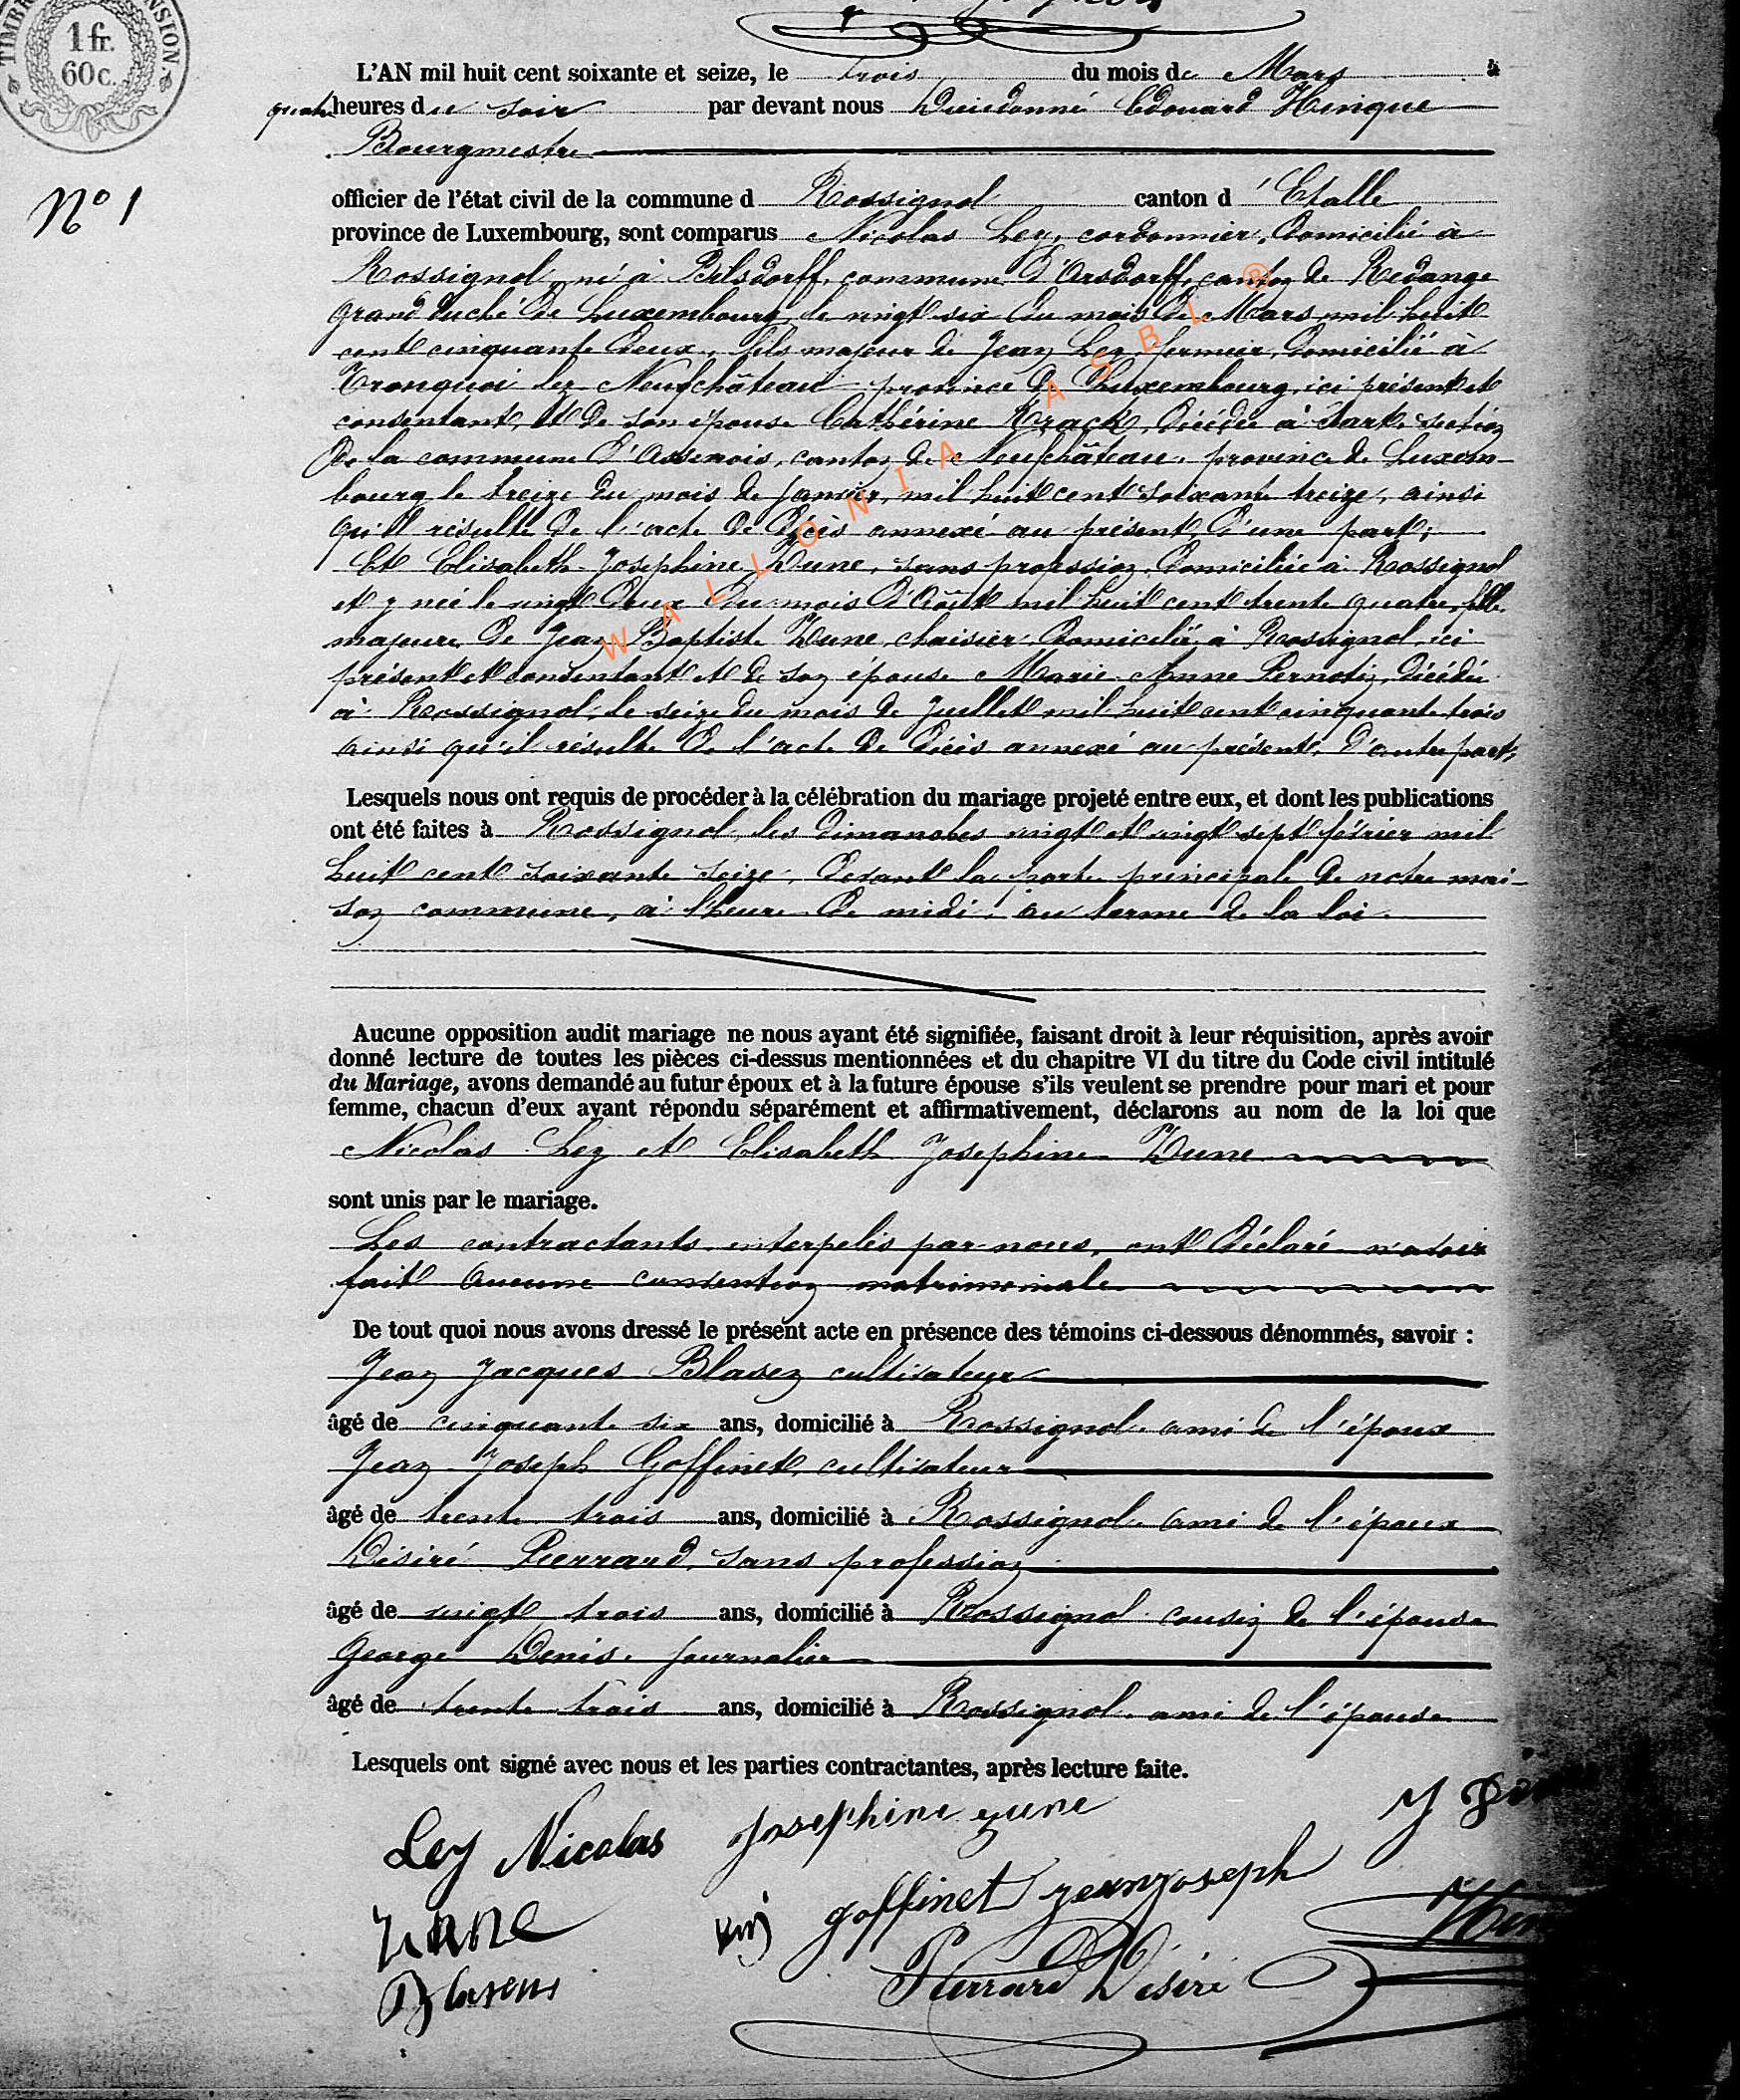 1 fr.
60c.
L'AN mil huit cent soixante et seize, le trois du mois de Mars à
quatre heures du soir par devant nous Dieudonné Edouard Hinique
Bourgmestre
officier de l'état civil de la commune d Rossignol canton d'Etalle
N° 1
province de Luxembourg, sont comparus Nicolas Ley, cordonnier, domicilié à
Rossignol, né à Bilsdorff, commune d'Arsdorff, canton de Redange
grand duché de Luxembourg, le vingt six du mois de Mars mil huit
cent cinquante deux, fils majeur de Jean Ley fermier, domicilié à
Tronquoi lez Neufchâteau province de Luxembourg, ici présent et
consentant, et de son épouse Cathérine Krack, décédée à section
de la commune d'Assenois, canton de Neufchâteau, province de Luxem-
bourg le treize du mois de Janvier, mil huit cent soixante treize, ainsi
qu'il résulte de l'acte de décès annexé au présent, d'une part;
Et Elisabeth Josephine Zune, sans profession, domiciliée à Rossignol
et y née le vingt deux du mois d'Août mil huit cent trente quatre, fille
majeure de Jean Baptiste Zune, chaisier, domicilié à Rossignol, ici
présent et consentant et de son épouse Marie Anne Pernotin, décédée
à Rossignol, le seize du mois de Juillet mil huit cent cinquante trois
ainsi qu'il résulte de l'acte de décès annexé au présent, d'autre part,
Lesquels nous ont requis de procéder à la célébration du mariage projeté entre eux, et dont les publications
ont été faites à Rossignol, les dimanches vingt et vingt sept février mil
huit cent soixante seize, devant la porte principale de notre mai-
son commune, à l'heure de midi, au terme de la loi.
Aucune opposition audit mariage ne nous ayant été signifiée, faisant droit à leur réquisition, après avoir
donné lecture de toutes les pièces ci-dessus mentionnées et du chapitre VI du titre du Code civil intitulé
du Mariage, avons demandé au futur époux et à la future épouse s'ils veulent se prendre pour mari et pour
femme, chacun d'eux ayant répondu séparément et affirmativement, déclarons au nom de la loi que
Nicolas Ley et Elisabeth Josephine Zune
sont unis par le mariage.
Les contractants interpelés par nous, ont déclaré n'avoir
fait aucune convention matrimoniale
De tout quoi nous avons dressé le présent acte en présence des témoins ci-dessous dénommés, savoir :
Jean Jacques Blasen cultivateur
âgé de cinquante six ans, domicilié à Rossignol ami de l'époux
Jean Joseph Goffinet, cultivateur
âgé de trente trois ans, domicilié à Rossignol ami de l'époux
Désiré Pierrard, sans profession
âgé de vingt trois ans, domicilié à Rossignol cousin de l'épouse
George Denis, journalier
âgé de trente trois ans, domicilié à Rossignol ami de l'épouse
Lesquels ont signé avec nous et les parties contractantes, après lecture faite.
Ley Nicolas Josephine zune
Zune goffinet jean joseph
Blasen Pierrard Désiré
WALLONIA ASBL ®